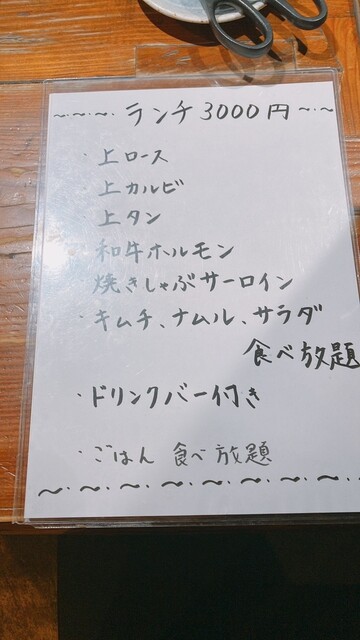 ～・～・～・ ランチ 3000円 ～・～
・上ロース
・上カルビ
・上タン
・和牛ホルモン
・焼きしゃぶサーロイン
・キムチ、ナムル、サラダ
食べ放題
・ドリンクバー付き
・ごはん 食べ放題